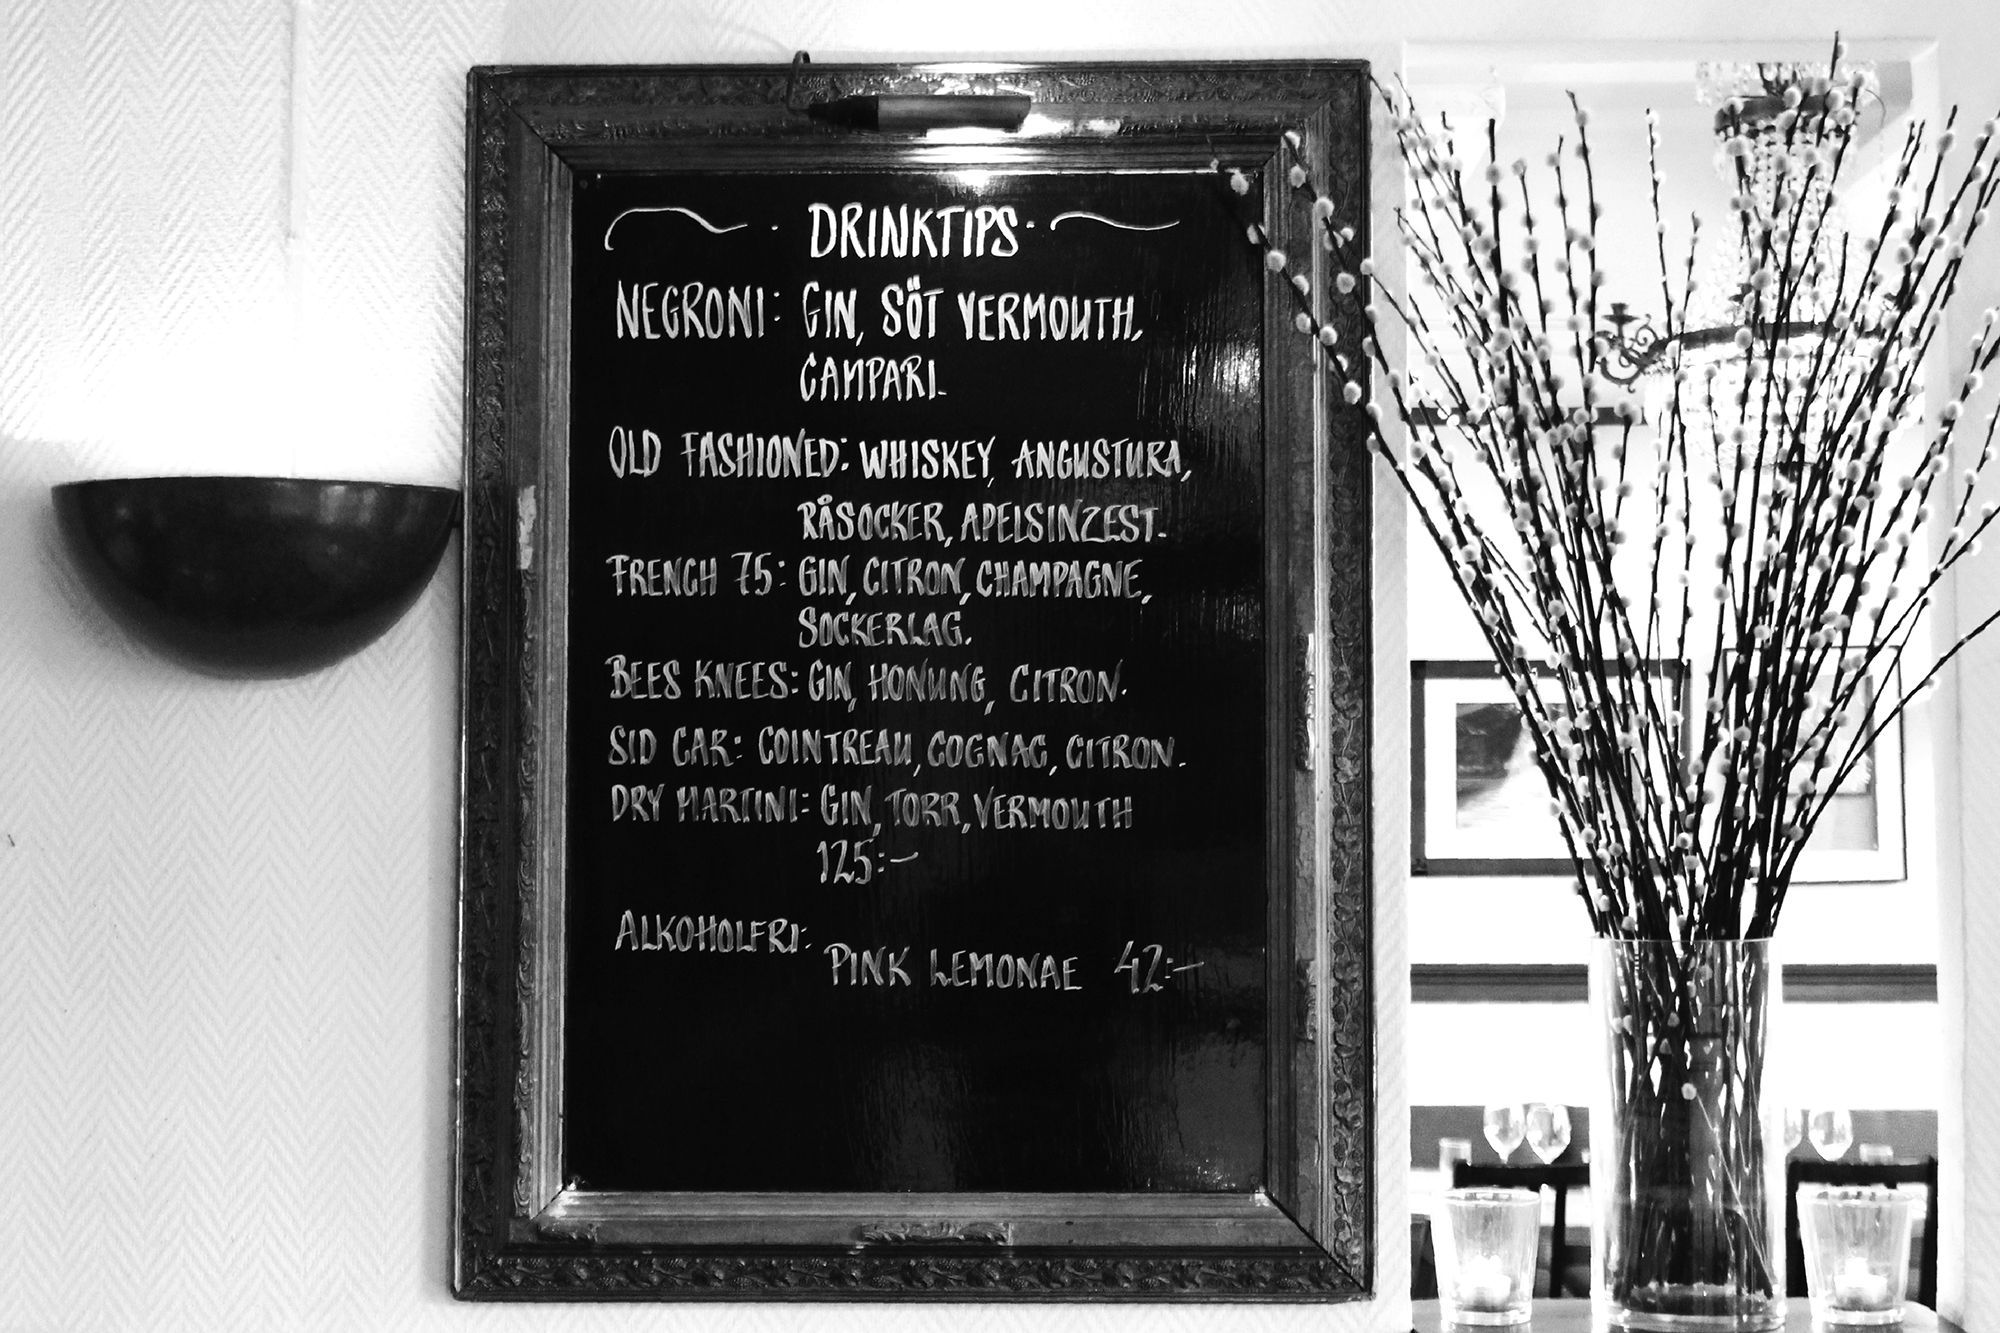 DRINKTIPS
NEGRONI: GIN, SÖT VERMOUTH,
CAMPARI.
OLD FASHIONED: WHISKEY, ANGUSTURA,
RÅSOCKER, APELSINZEST.
FRENCH 75: GIN, CITRON, CHAMPAGNE,
SOCKERLAG.
BEES KNEES: GIN, HONUNG, CITRON.
SID CAR: COINTREAU, COGNAC, CITRON.
DRY MARTINI: GIN, TORR, VERMOUTH
125:-
ALKOHOLFRI:
PINK LEMONAE 42:-